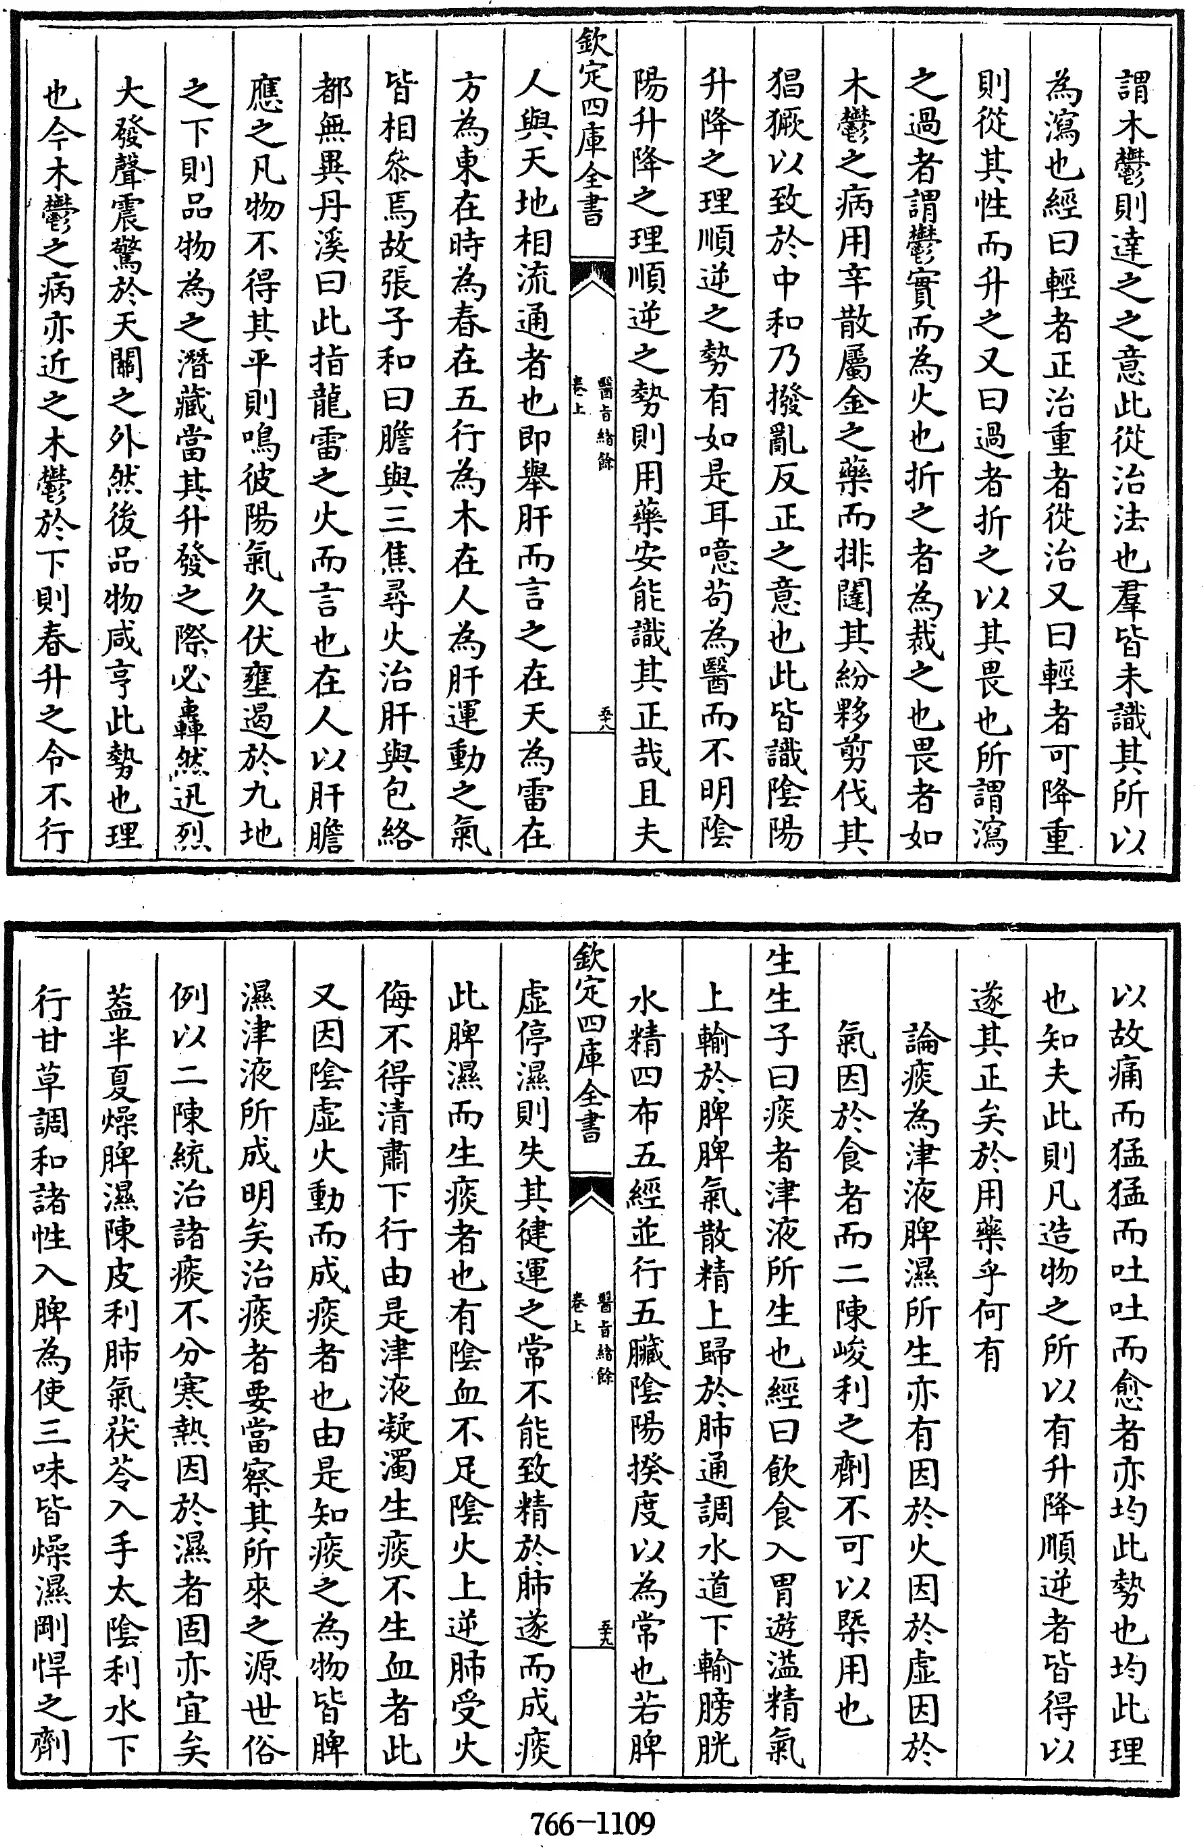 謂木鬱則達之之意此從治法也羣皆未識其所以
為瀉也經曰輕者正治重者從治又曰輕者可降重
則從其性而升之又曰過者折之以其畏也所謂瀉
之過者謂鬱實而為火也折之者為裁之也畏者如
木鬱之病用辛散屬金之藥而排闥其紛夥剪伐其
猖獗以致於中和乃撥亂反正之意也此皆識陰陽
升降之理順逆之勢有如是耳噫茍為醫而不明陰
陽升降之理順逆之勢則用藥安能識其正哉且夫
欽定四庫全書
醫旨緒餘
卷上
五八
人與天地相流通者也即舉肝而言之在天為雷在
方為東在時為春在五行為木在人為肝運動之氣
皆相叅焉故張子和曰膽與三焦尋火治肝與包絡
都無異丹溪曰此指龍雷之火而言也在人以肝膽
應之凡物不得其平則鳴彼陽氣久伏壅遏於九地
之下則品物為之潛藏當其升發之際必轟然迅烈
大發聲震驚於天關之外然後品物咸亨此勢也理
也今木鬱之病亦近之木鬱於下則春升之令不行
以故痛而猛猛而吐吐而愈者亦均此勢也均此理
也知夫此則凡造物之所以有升降順逆者皆得以
遂其正矣於用藥乎何有
論痰為津液脾濕所生亦有因於火因於虛因於
氣因於食者而二陳峻利之劑不可以槩用也
生生子曰痰者津液所生也經曰飲食入胃遊溢精氣
上輸於脾脾氣散精上歸於肺通調水道下輸膀胱
水精四布五經並行五臟陰陽揆度以為常也若脾
欽定四庫全書
醫旨緒餘
卷上
五九
虛停濕則失其健運之常不能致精於肺遂而成痰
此脾濕而生痰者也有陰血不足陰火上逆肺受火
侮不得清肅下行由是津液凝濁生痰不生血者此
又因陰虛火動而成痰者也由是知痰之為物皆脾
濕津液所成明矣治痰者要當察其所來之源世俗
例以二陳統治諸痰不分寒熱因於濕者固亦宜矣
葢半夏燥脾濕陳皮利肺氣茯苓入手太陰利水下
行甘草調和諸性入脾為使三味皆燥濕剛悍之劑
766-1109